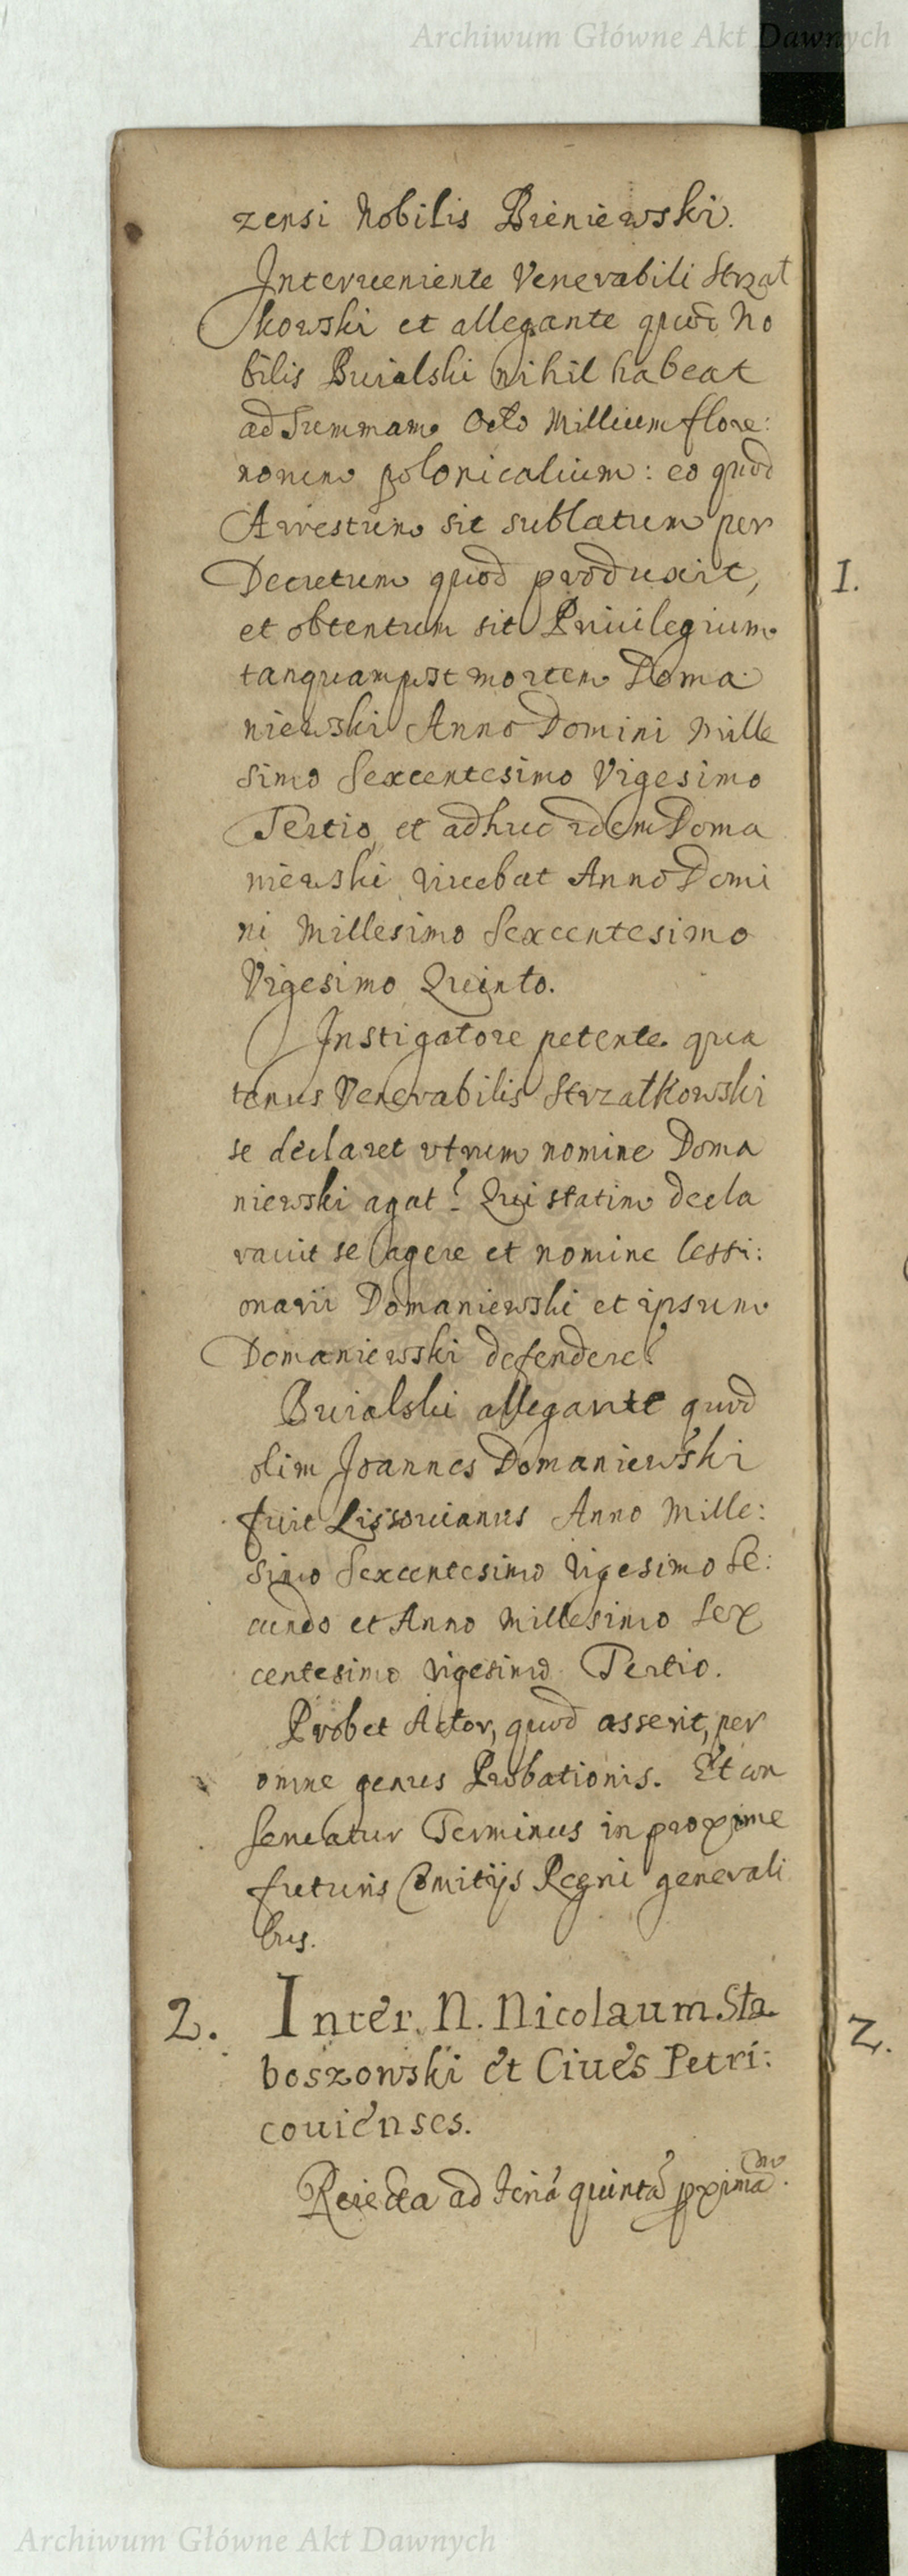 Archiwum Główne Akt Dawnych
zensi Nobilis Bieniewski.
Interueniente Venerabili Strzał
kowski et allegante quod No
bilis Buialski nihil habeat
ad Summam Octo Millium flore:
norum polonicalium: eo quod
Arrestum sit sublatum per
Decretum quod produxit,
et obtentum sit Priuilegium
tanquam post mortem Doma
niewski Anno Domini Mille
simo Sexcentesimo Vigesimo
Tertio, et adhuc idem Doma
niewski viuebat Anno Domi
ni Millesimo Sexcentesimo
Vigesimo Quinto.
Instigatore petente qua
tenus Venerabilis Strzałkowski
se declaret vtrum nomine Doma
niewski agat? Qui statim decla
rauit se agere et nomine Cessi:
onarii Domaniewski et ipsum
Domaniewski defendere?
Buialski allegante quod
olim Joannes Domaniewski
fuit Lissouianus Anno Mille:
simo Sexcentesimo Vigesimo Se:
cundo et Anno Millesimo Sex
centesimo Vigesimo Tertio.
Probet Actor, quod asserit, per
omne genus Probationis. Et con
seruatur Terminus in proxime
futuris Comitijs Regni generali
bus.
2. Inter N. Nicolaum Sta
boszowski et Ciues Petri:
couienses.
Reiecta ad feriã quintã pximã
1.
2.
Archiwum Główne Akt Dawnych